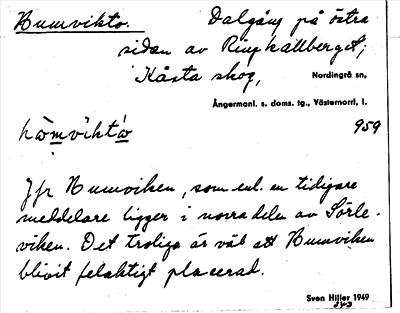 Bumvikto. Dalgång på östra
sidan av Ringkallberget;
Kåsta skog, Nordingrå sn,
Ångermanl. s. doms. tg., Västernorrl. l.
959
Jfr Bumviken, som enl. en tidigare
meddelare ligger i norra delen av Sörle-
viken. Det troliga är väl att Bumviken
blivit felaktigt placerad.
Sven Hiller 1949